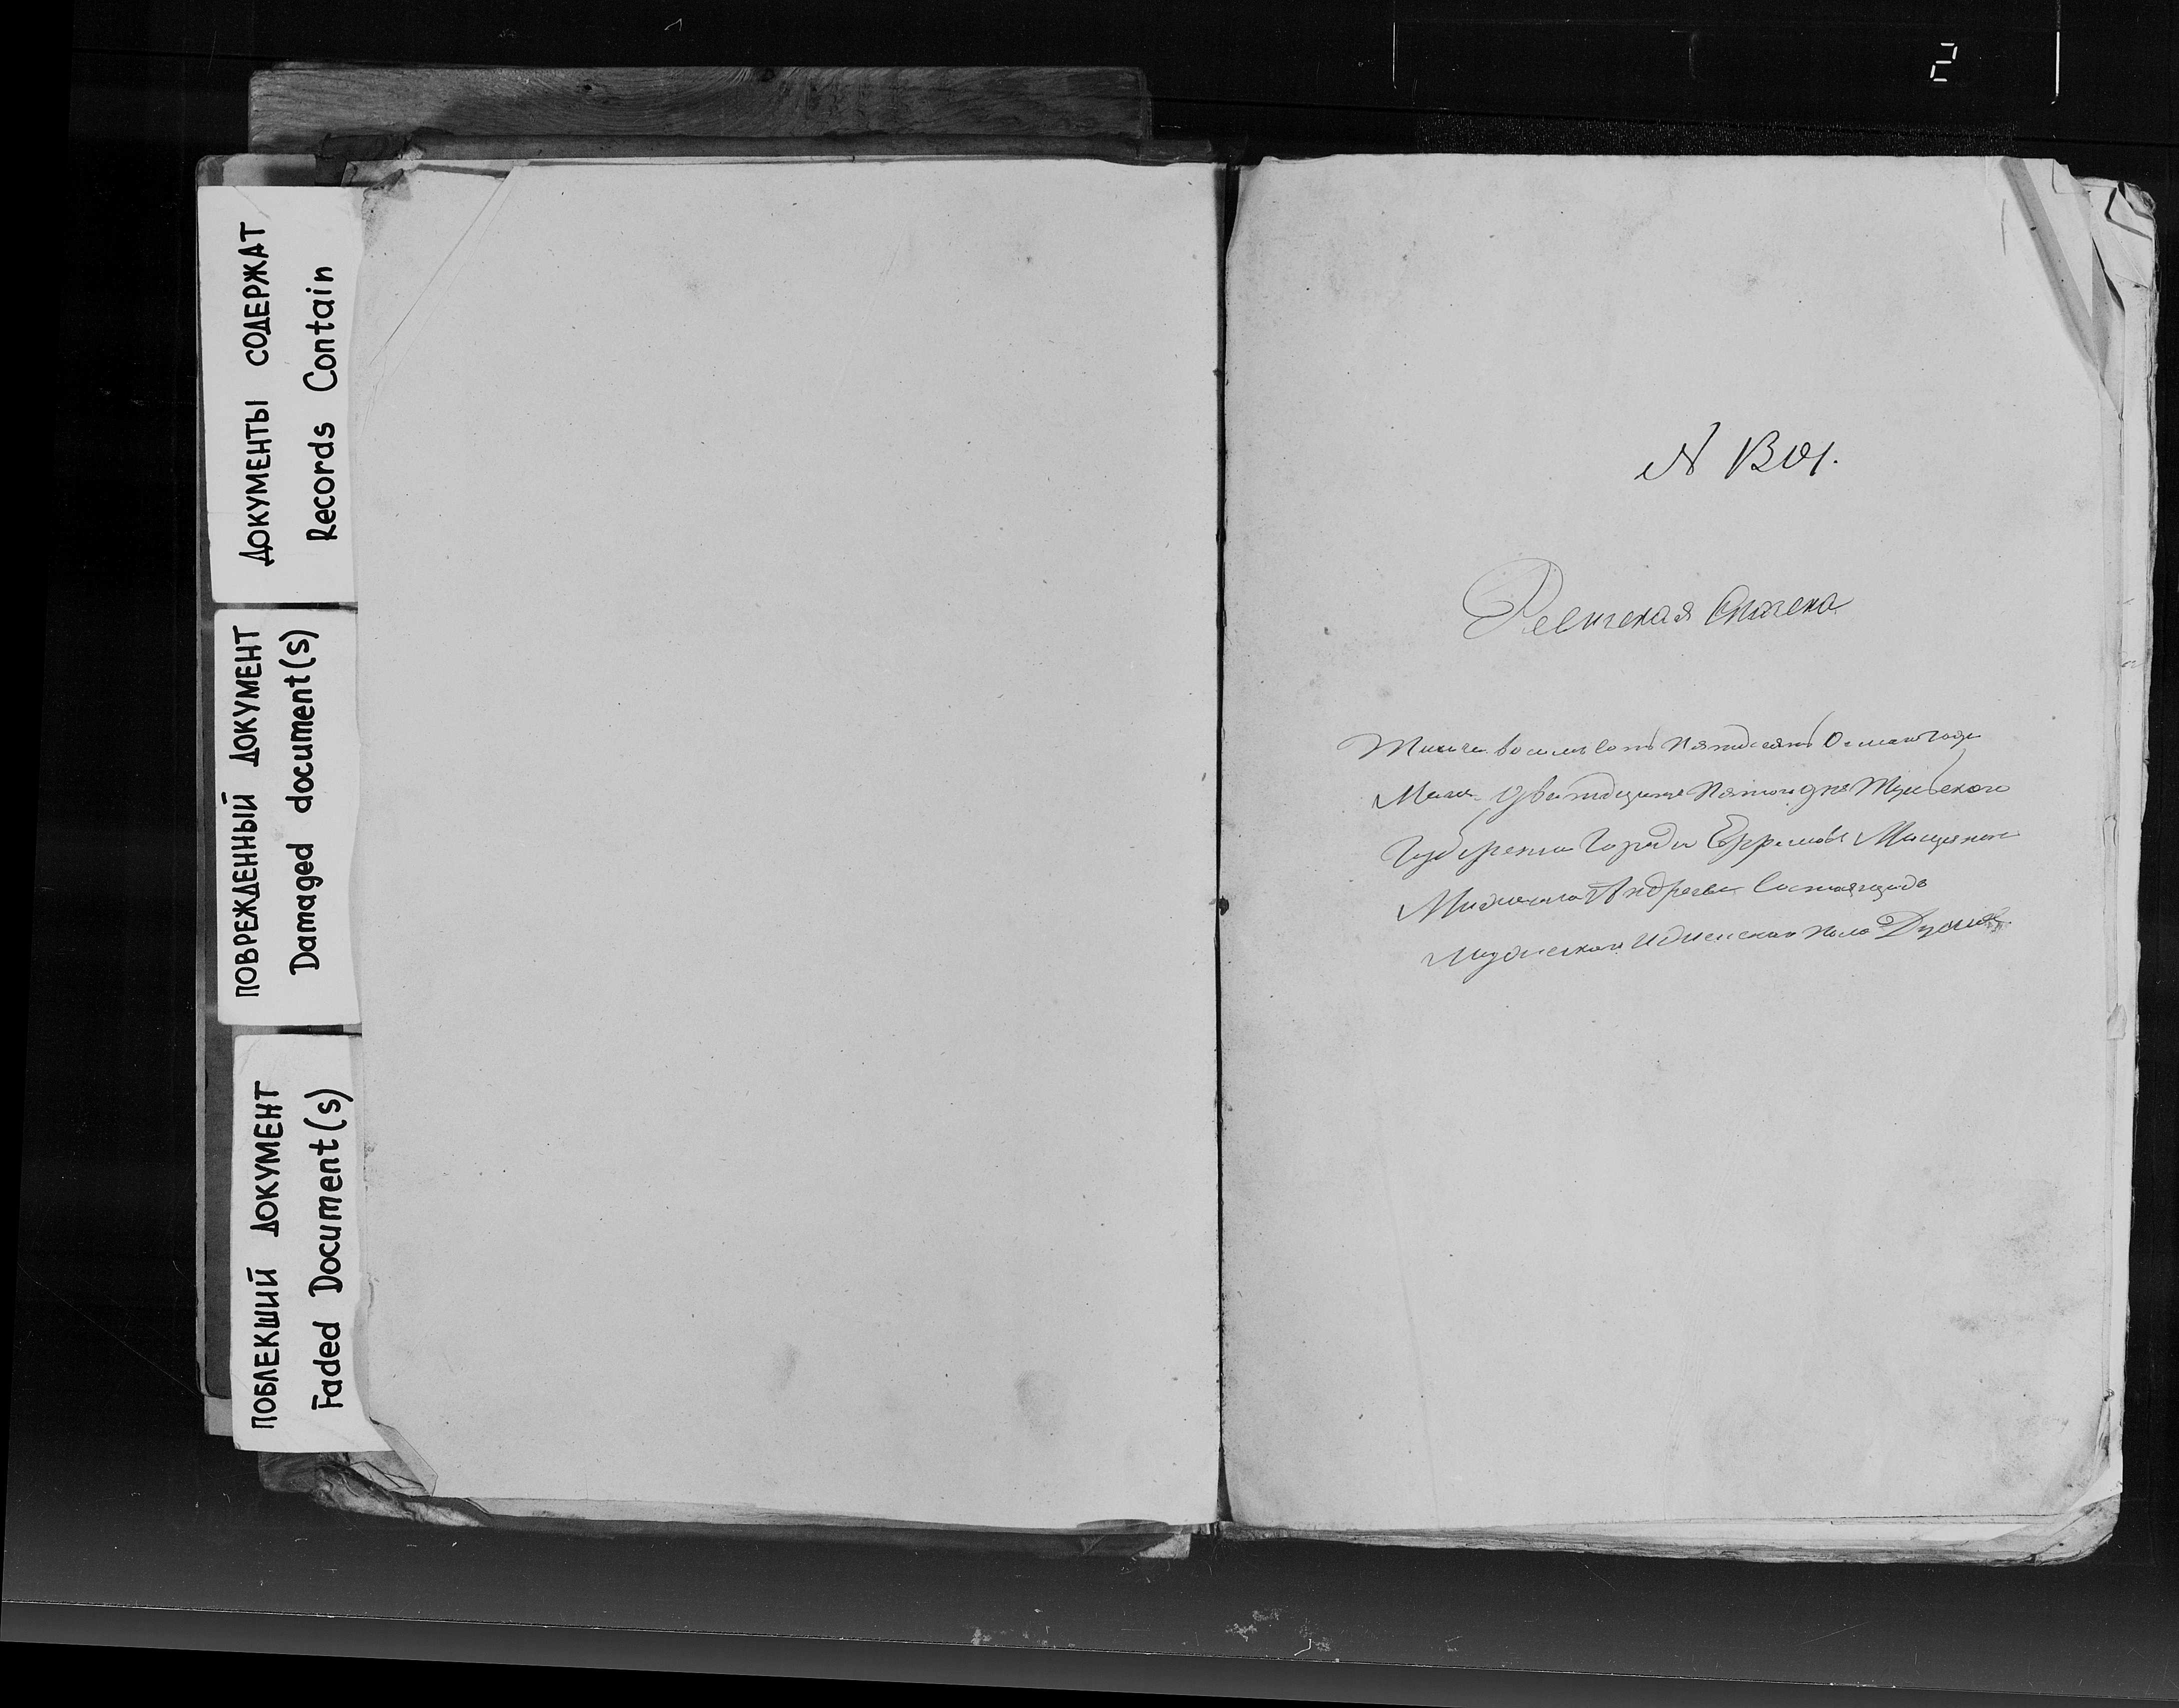 2
ДОКУМЕНТЫ СОДЕРЖАТ
Records Contain
ПОВРЕЖДЕННЫЙ ДОКУМЕНТ
Damaged document(s)
ПОБЛЕКШИЙ ДОКУМЕНТ
Faded Document(s)
N
Ревизская Сказка
Тысяча восемьсотъ пятьдесятъ Осмаго года
Маия двадцать пятого дня Тульской
Губернии города Ефремова Мещянина
Андреева состоящаго
мужеска и женска пола Душах